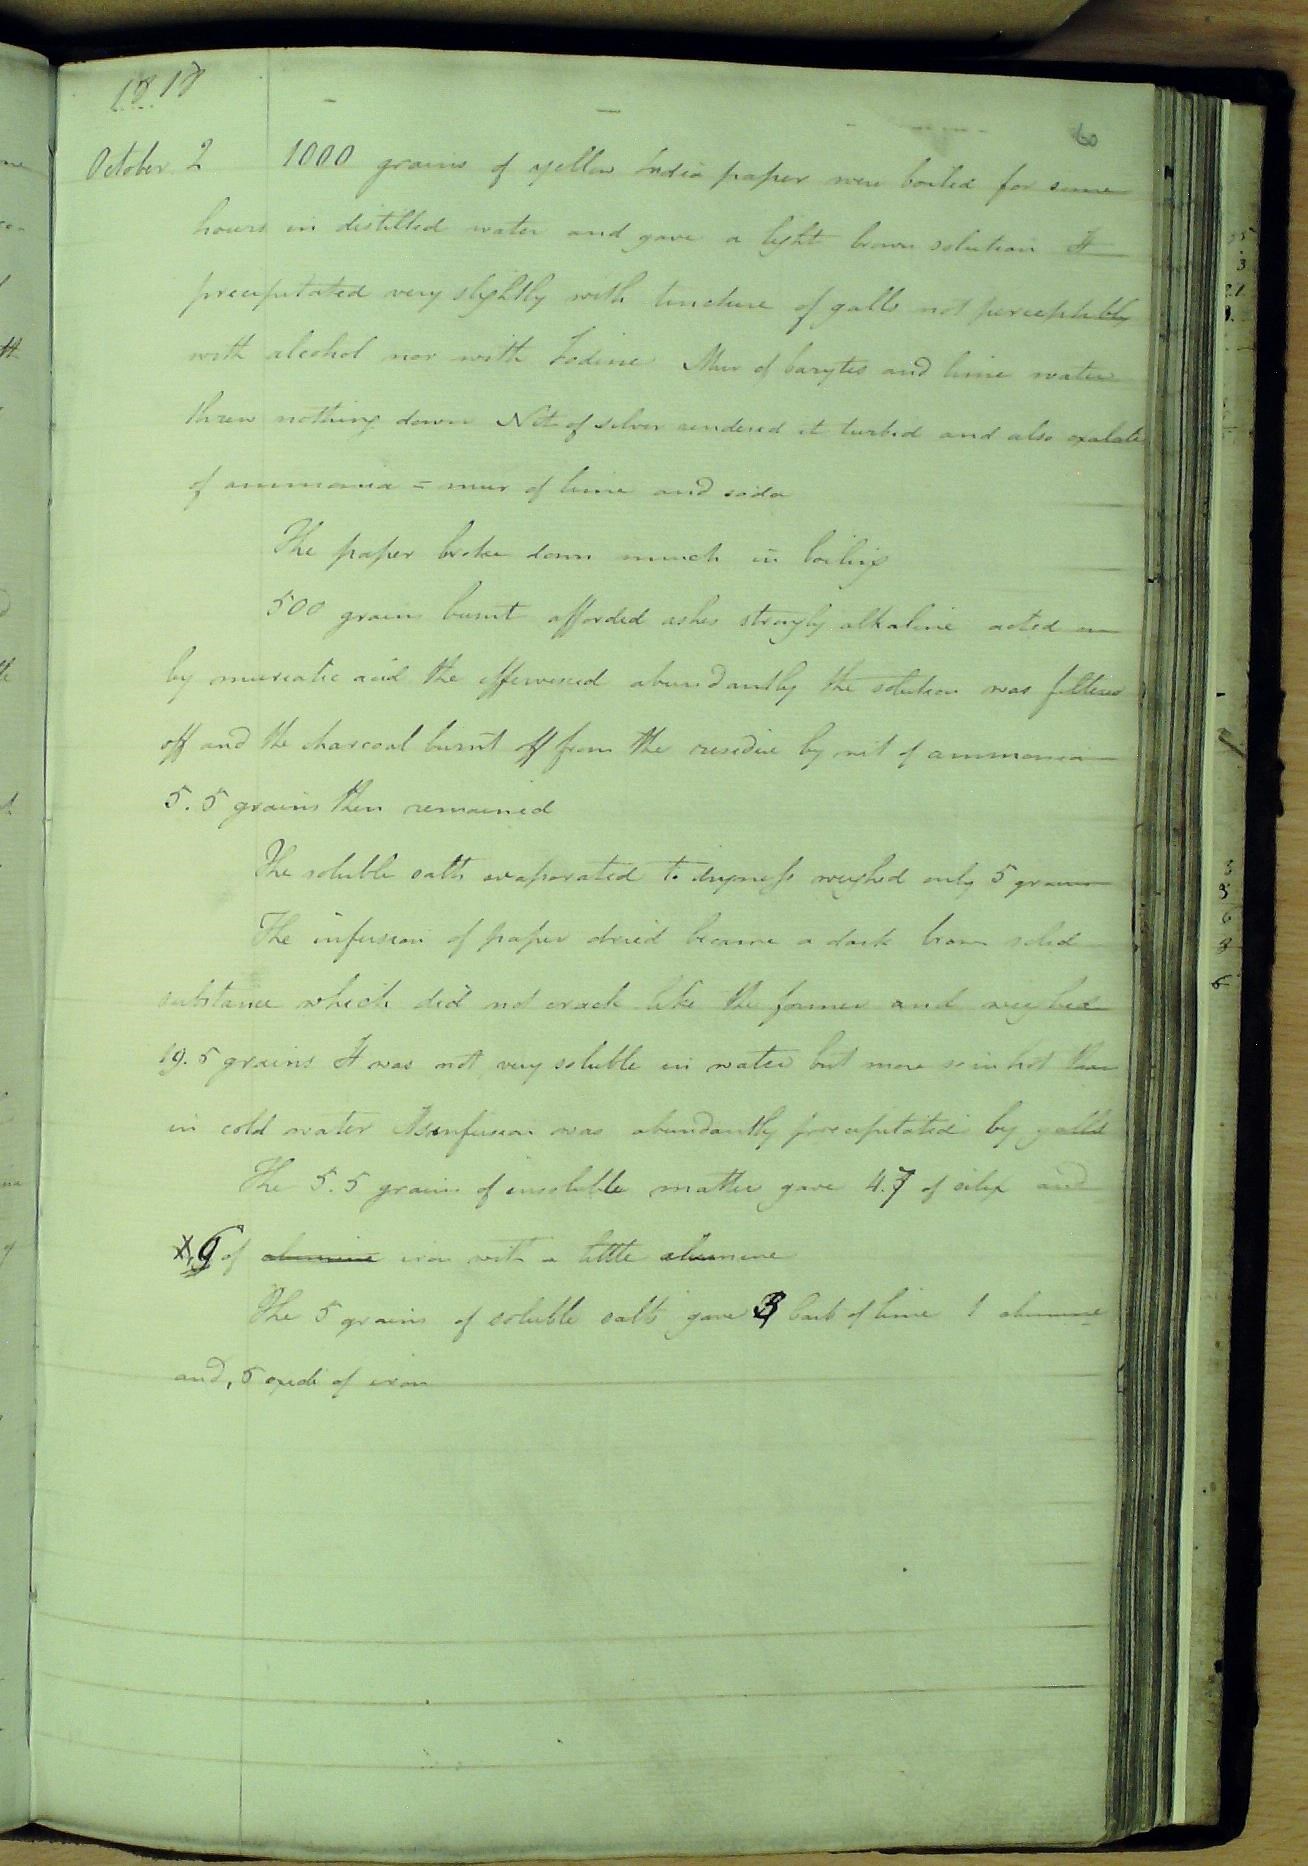 1818
60
October 2 1000 grains of yellow India paper were boiled for some
hours in distilled water and gave a light brown solution It
precipitated very slightly with tincture of galls not perceptibly
with alcohol nor with Iodine Mur of barytes and lime water
threw nothing down Nit of silver rendered it turbid and also oxalate
of ammonia = mur of lime and soda
The paper broke down much in boiling
500 grains burnt afforded ashes strongly alkaline acted on
by muriatic acid the effervesced abundantly the solution was filtered
off and the charcoal burnt off from the residue by nit of ammonia
5.5 grains then remained
The soluble salts evaporated to dryness weighed only 5 grains
The infusion of paper dried became a dark brown solid
substance which did not crack like the former and weighed
19.5 grains It was not very soluble in water but more so in hot than
in cold water Its infusion was abundantly precipitated by galls
The 5.5 grains of insoluble matter gave 4.7 of silex and
,9 of alumine iron with a little alumine
The 5 grains of soluble salts gave 3 Carb of lime 1 alumine
and ,5 oxide of iron